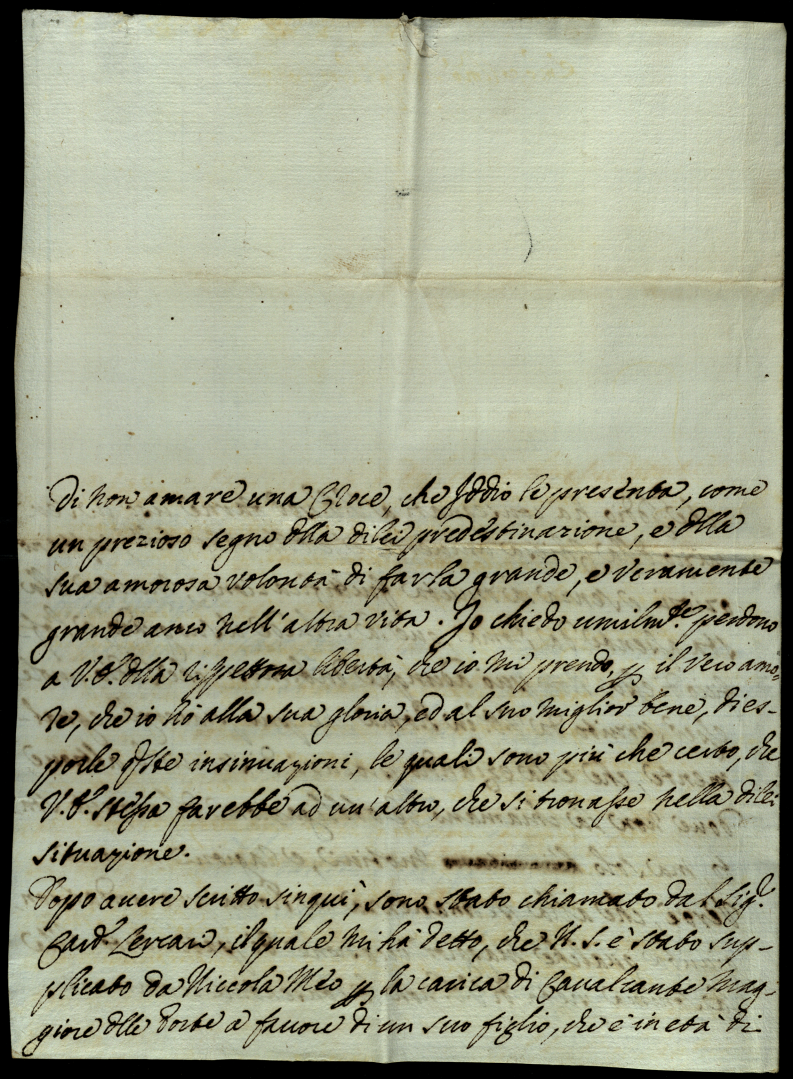 di non amare una Croce, che Iddio le presenta, come
un prezioso segno dlla dilei predestinazione, e dlla
sua amorosa volontà di farla grande, e veramente
grande anco nell'altra vita. Io chiedo umilmte. perdono
a V.E. dlla rispettosa libertà, che io mi prendo, p il vero amo-
re, che io hò alla sua gloria, ed al suo miglior bene, di es-
porle qste insinuazioni, le quali sono più che certo, che
V.E. stessa farebbe ad un'altro, che si trovasse nella dilei
situazione.
Dopo avere scritto sinqui, sono stato chiamato dal Sigr.
Card. Lercari, il quale mi hà detto, che N. S. è stato sup-
plicato da Niccola Meo p la carica di Cavalcante Mag-
giore dlle Poste a favore di un suo figlio, che è in età di